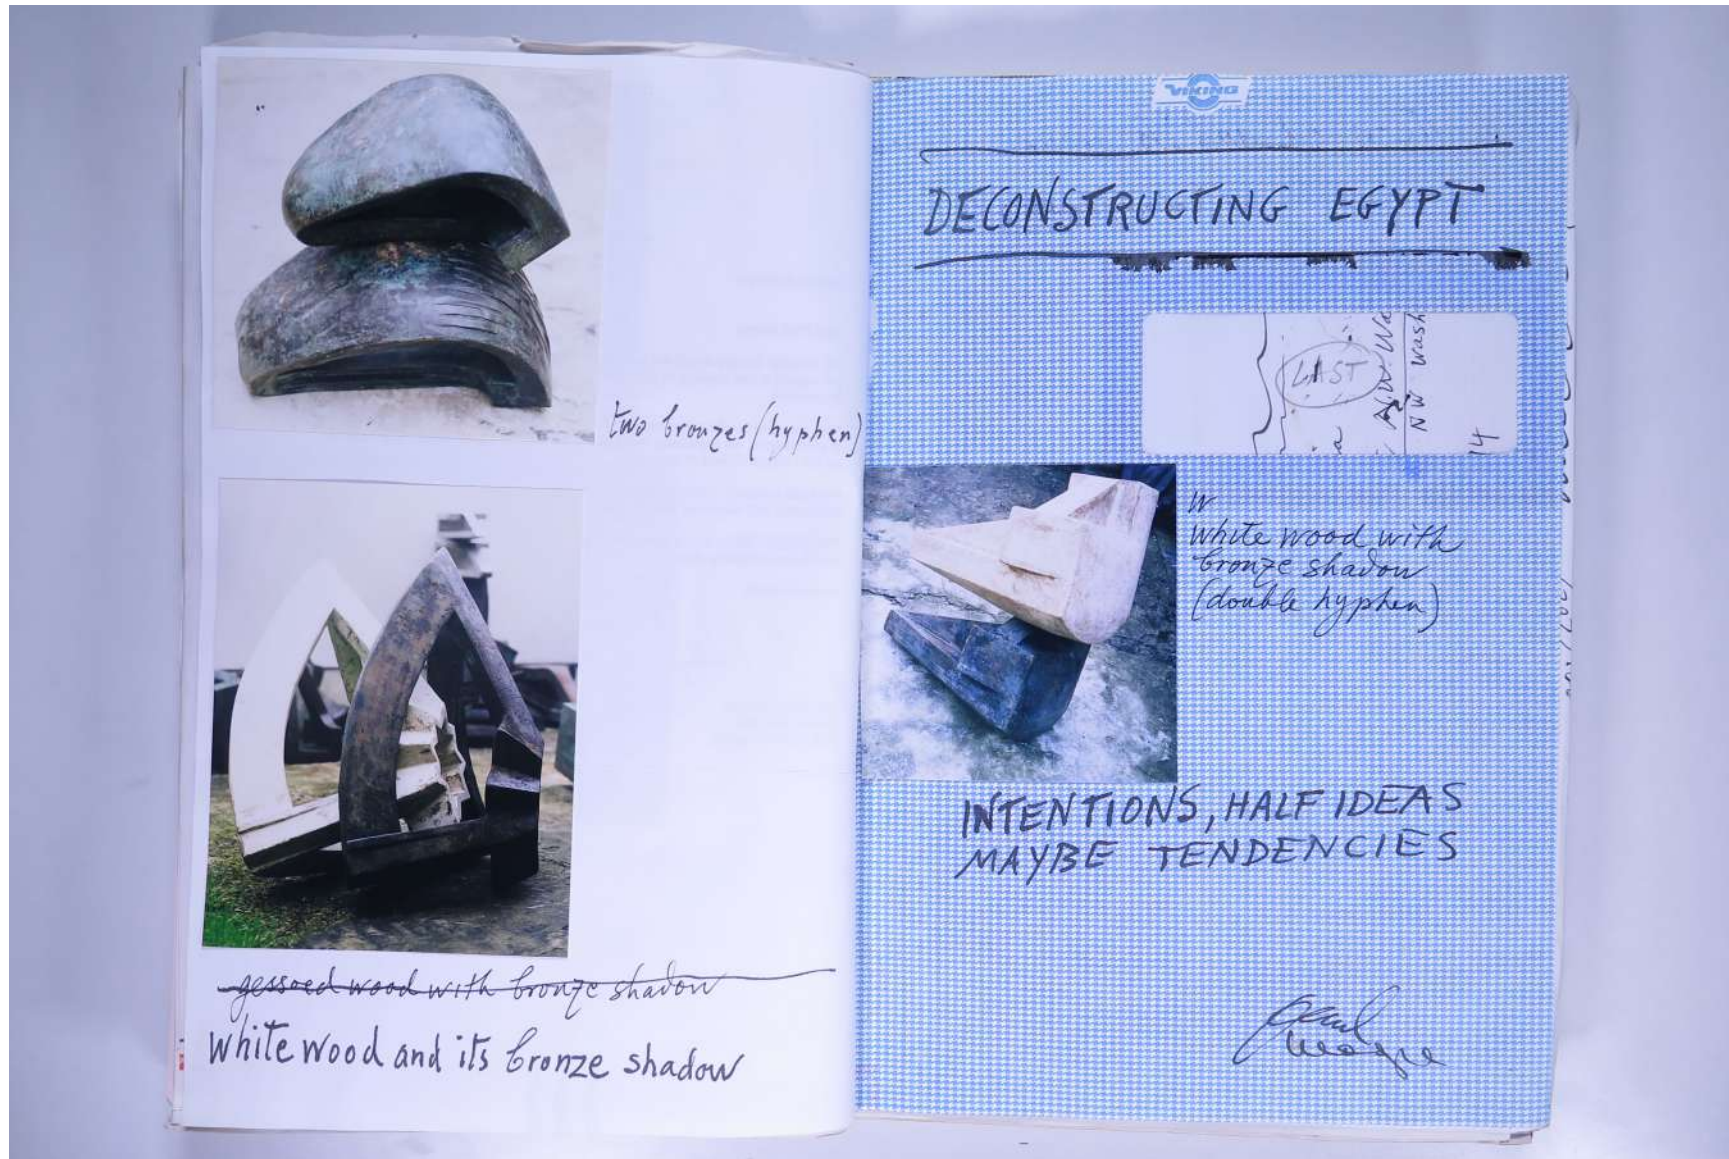 two bronzes (hyphen)
gessoed wood with bronze shadow
white wood and its bronze shadow
VIKING
DECONSTRUCTING EGYPT
LAST
NW Wash
14
W
white wood with
bronze shadow
(double hyphen)
INTENTIONS, HALF IDEAS
MAYBE TENDENCIES